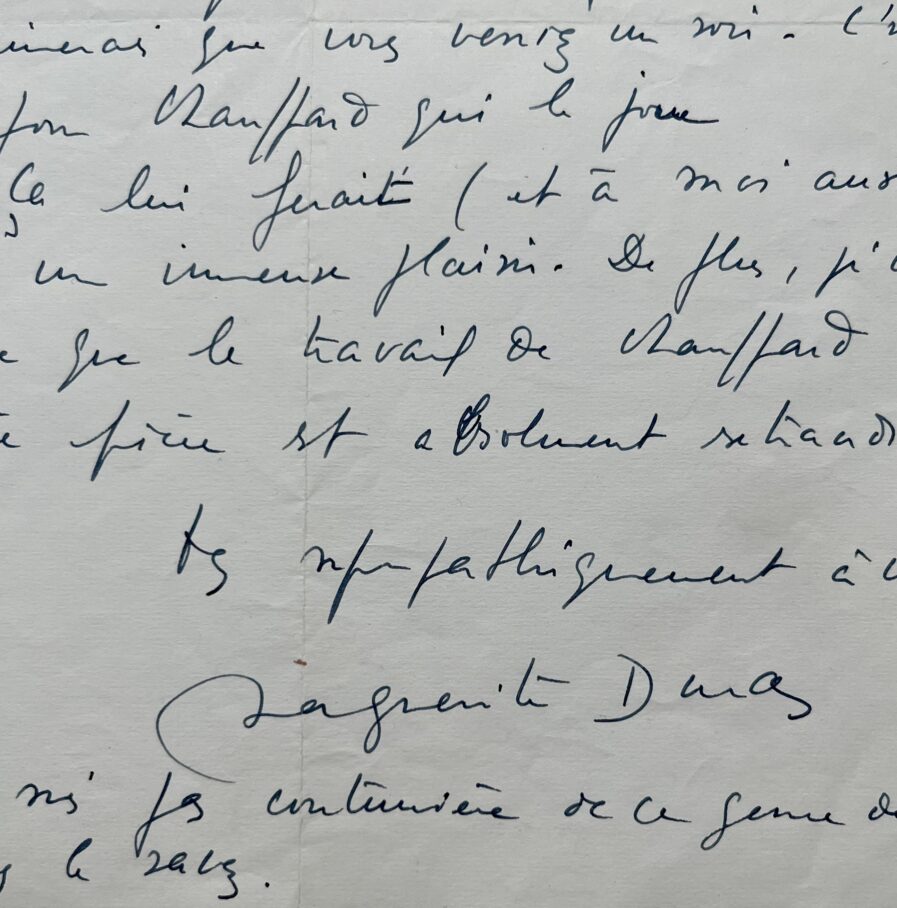 imerais que vous veniez un soir. C'e
pour Chauffard qui le joue
Ça lui ferait (et à moi aus
un immense plaisir. De plus, j'
e que le travail de Chauffard
te pièce est absolument
très sympathiquement à v
Marguerite Duras
suis pas coutumière de ce genre de
s le savez.